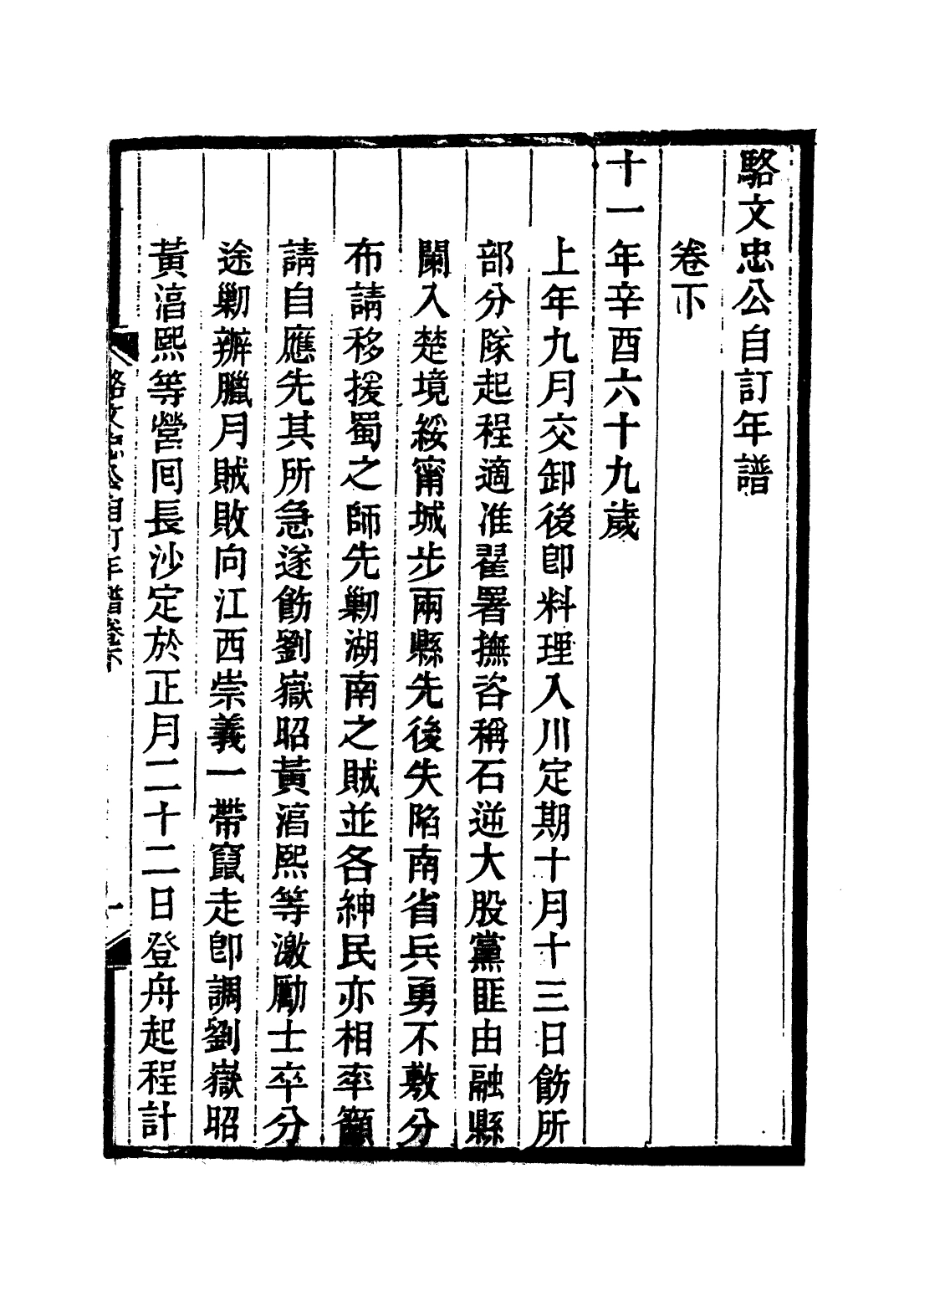 駱文忠公自訂年譜
卷下
十一年辛酉六十九歲
上年九月交卸後即料理入川定期十月十三日飭所
部分隊起程適准翟署撫咨稱石逆大股黨匪由融縣
闌入楚境綏甯城步兩縣先後失陷南省兵勇不敷分
布請移援蜀之師先勦湖南之賊並各紳民亦相率籲
請自應先其所急遂飭劉嶽昭黃湻熙等激勵士卒分
途勦辦臘月賊敗向江西崇義一帶竄走即調劉嶽昭
黃湻熙等營囘長沙定於正月二十二日登舟起程計
駱文忠公自訂年譜卷下
一